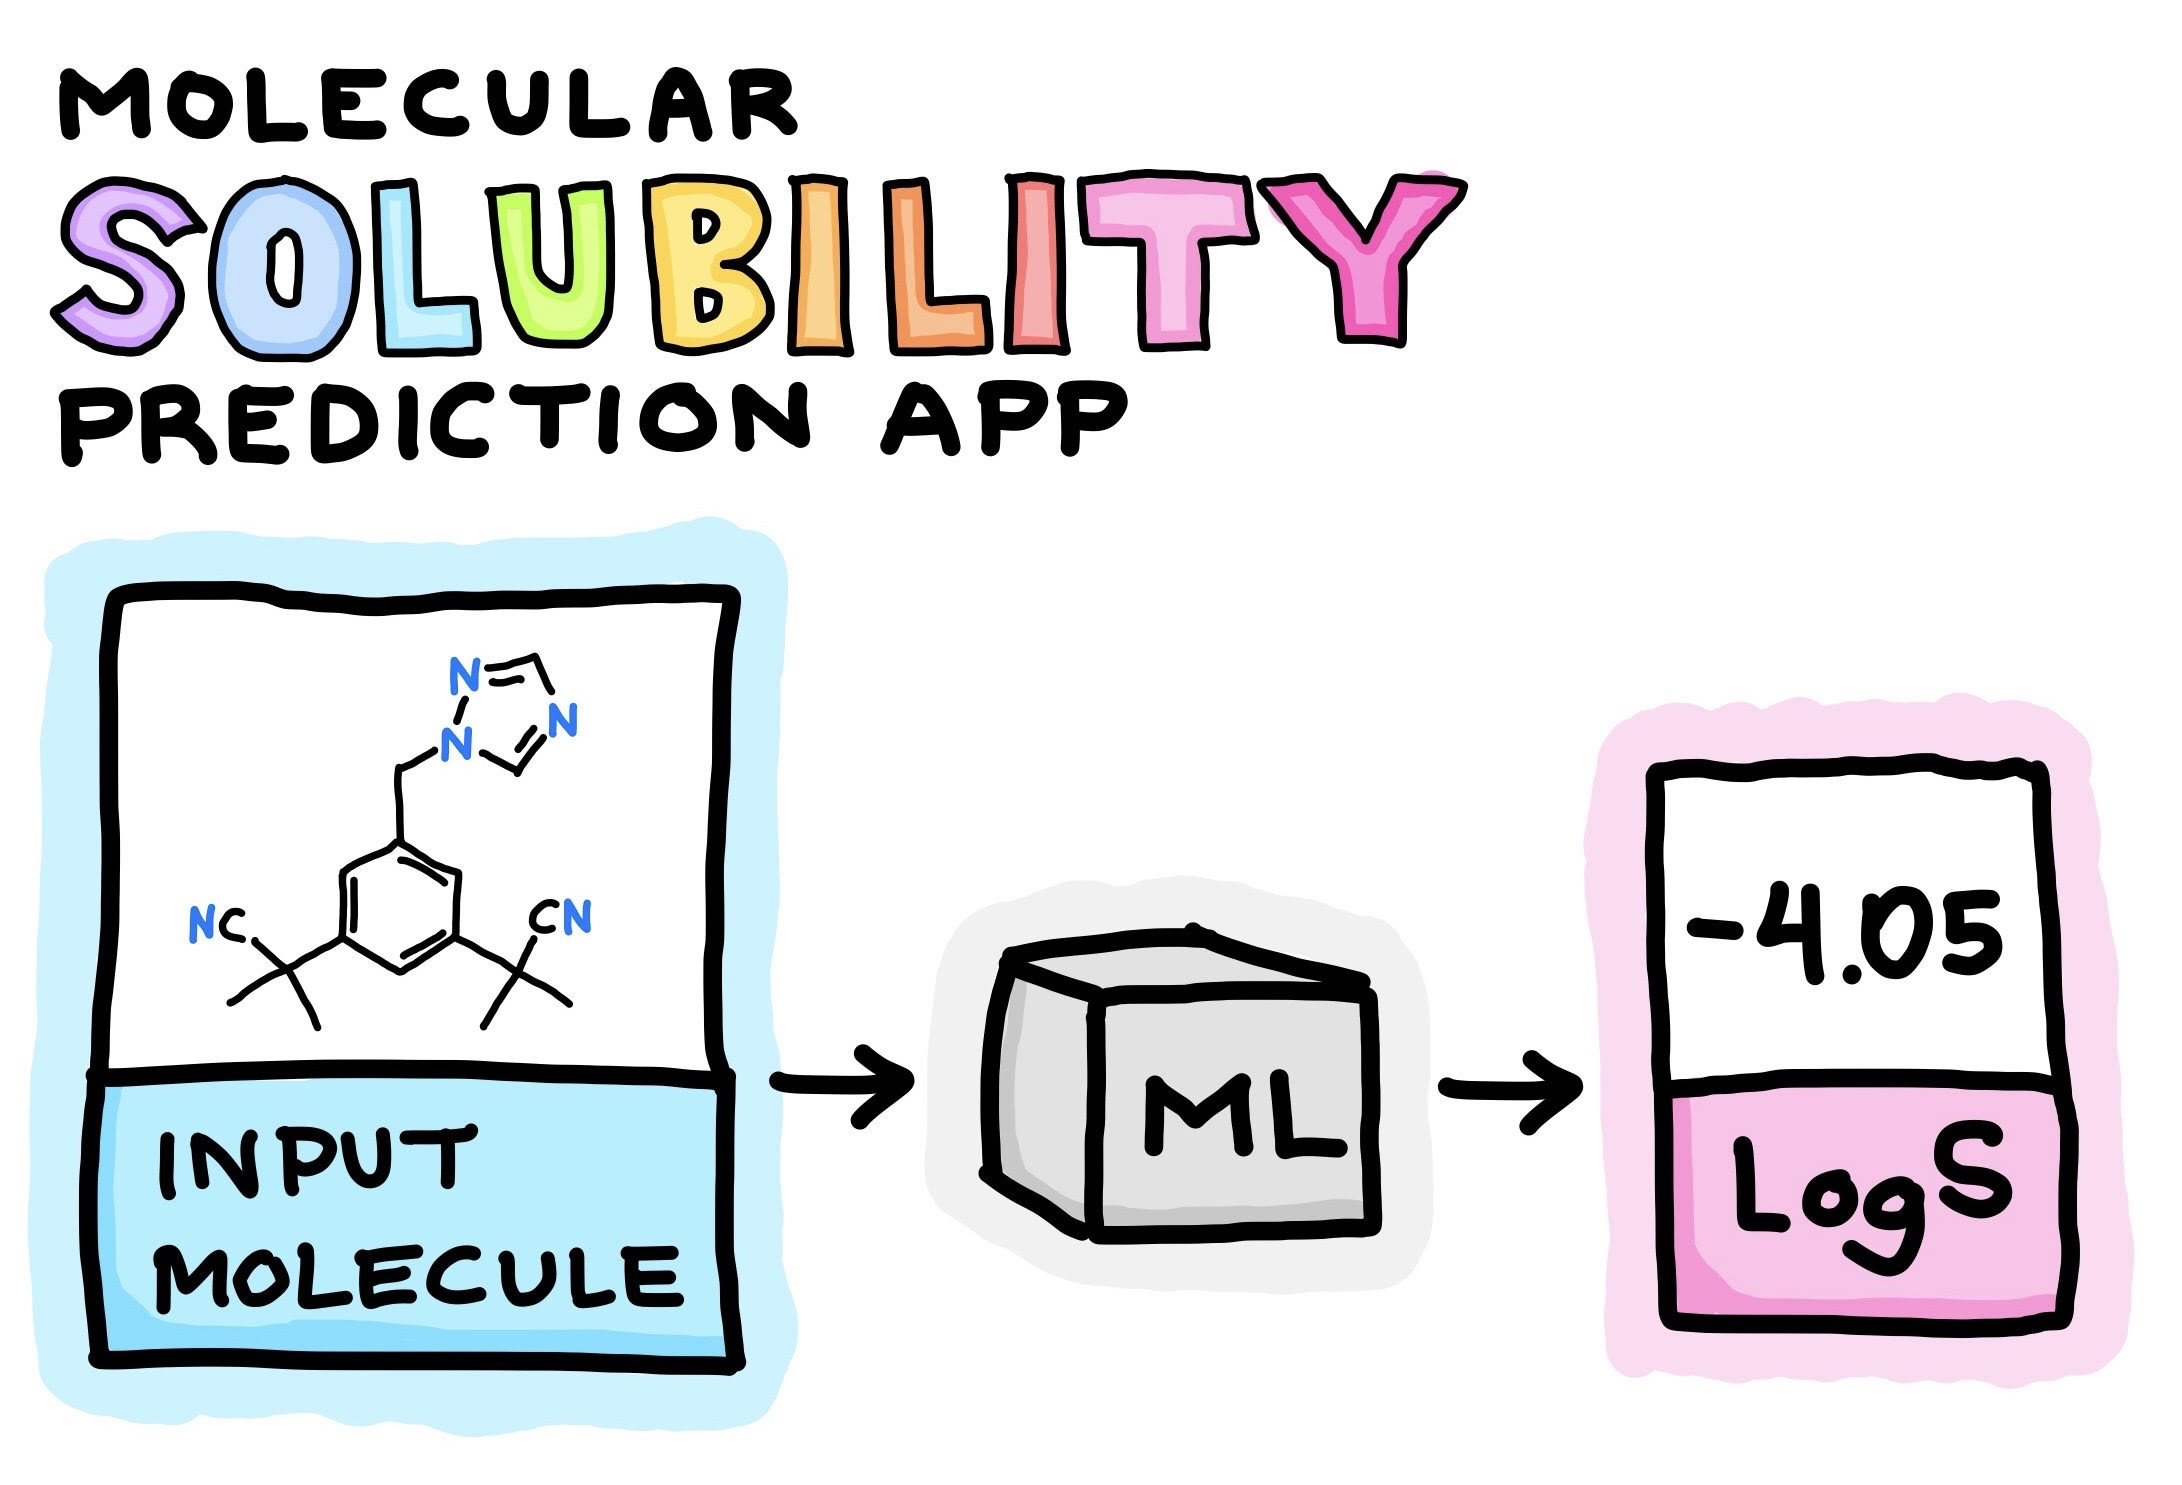 MOLECULAR
SOLUBILITY
PREDICTION APP
N
N
N
NC
CN
INPUT
MOLECULE
ML
-4.05
LogS